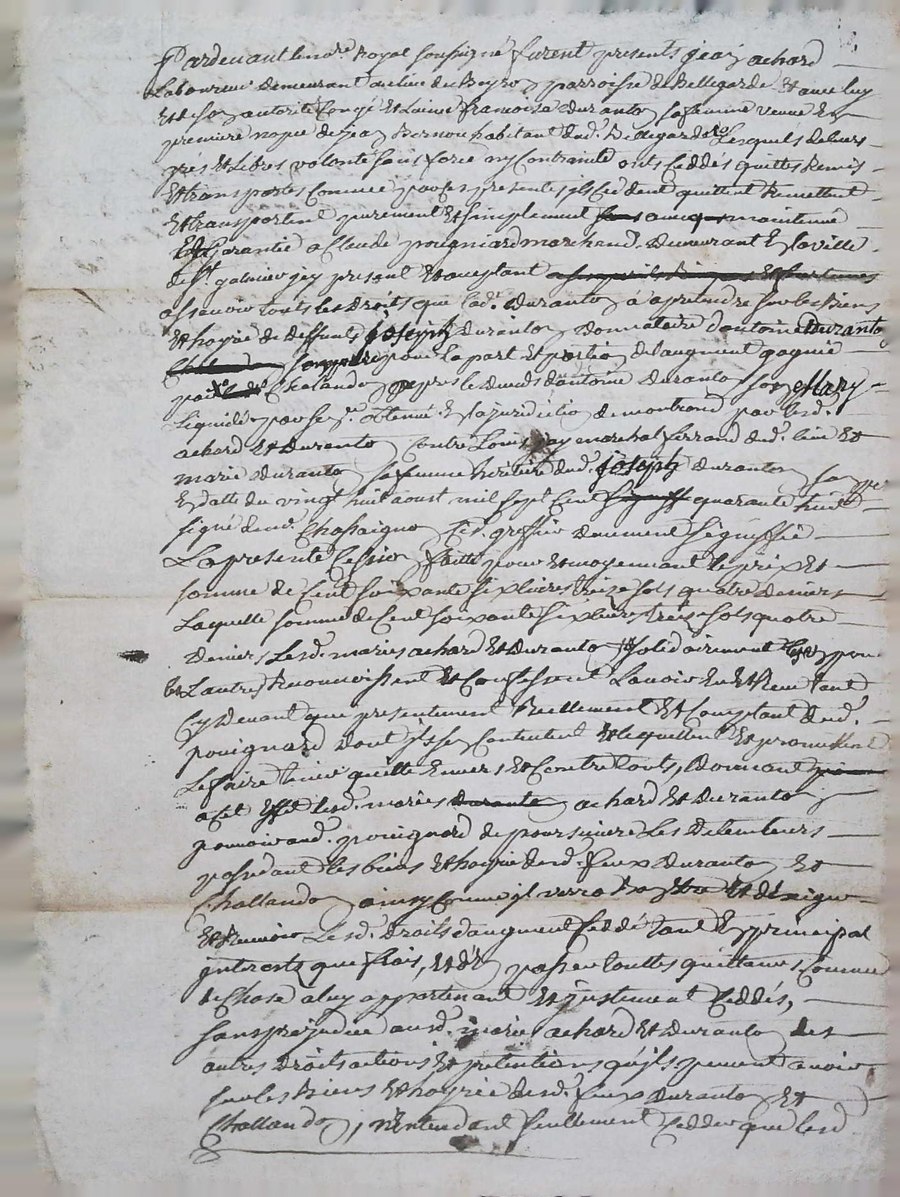 Pardevant le no.re Royal soussigné furent presents jean achard
Laboureur demeurant au lieu du parroisse de Bellegarde Et avec luy
Et de son autorité Congé Et Licence francoise duranton sa femme veuve En
premiere nopce de jean habitant dud. Bellegarde Lesquels de leurs
grés Et Libres volonté sans force ny Contrainte ont Ceddés quittés Remis
Et transportés Comme par ces presentes ils Ceddent quittent Remettent
Et transportent purement Et simplement avec maintenue
Et garantie a Claude pouigniard marchand demeurant En la ville
de st. galmier jcy present Et acceptant
assavoir touts les Droits que lad. Duranton a a prendre sur les Biens
Et hoyrie de deffunt joseph Duranton Donnataire d'antoine Duranton
son pere pour La part Et portion de laugment gagnié
par Chalandon apres le deceds d'antoine Duranton son Mary
Liquidés par se.ce obtenue En la juridiction de montrond par lesd.
achard Et Duranton Contre Louis marechal ferrand dud. lieu Et
marie duranton sa femme heritiere dud. joseph duranton son pere
En datte du vingt huit aoust mil sept Cent quarante huit
signé dud. Chassaigne greffier duement signiffié
La presente Cession faitte pour Et moyennant le prix Et
somme de Cent soixante six livres treize sols quatre deniers
Laquelle somme de Cent soixante six livres treize sols quatre
Deniers Lesd. mariés achard Et Duranton solidairement pour
Lautre Reconnoissent Et Confessent Lavoir Eu Et Receu tant
Cy devant que presentement Reellement Et Comptant dud.
pouignard dont ils se Contentent Et lequittent Et promettent
Le faire tenir quitte Envers Et Contre touts, Donnant
a Cet Effet lesd. mariés achard Et Duranton
pouvoir aud. pouignard de poursuivre Les Detempteurs
possedant les biens Et hoyrie desd. feux Duranton Et
Challandon ainsy Comme jl verra Bon Estre Et
Et Recevoir Lesd. Droits d'augment Ceddé tant En principal
jnterests que frais, Et d'En passer touttes quittances Comme
de Chose a luy appartenant Et justement Ceddés,
sans prejudice ausd. mariés achard Et Duranton des
autres Droits actions Et pretentions qu'ils peuvent avoir
sur les Biens Et hoyrie desd. feux Duranton Et
Challandon, n'Entendant seullement Cedder que lesd